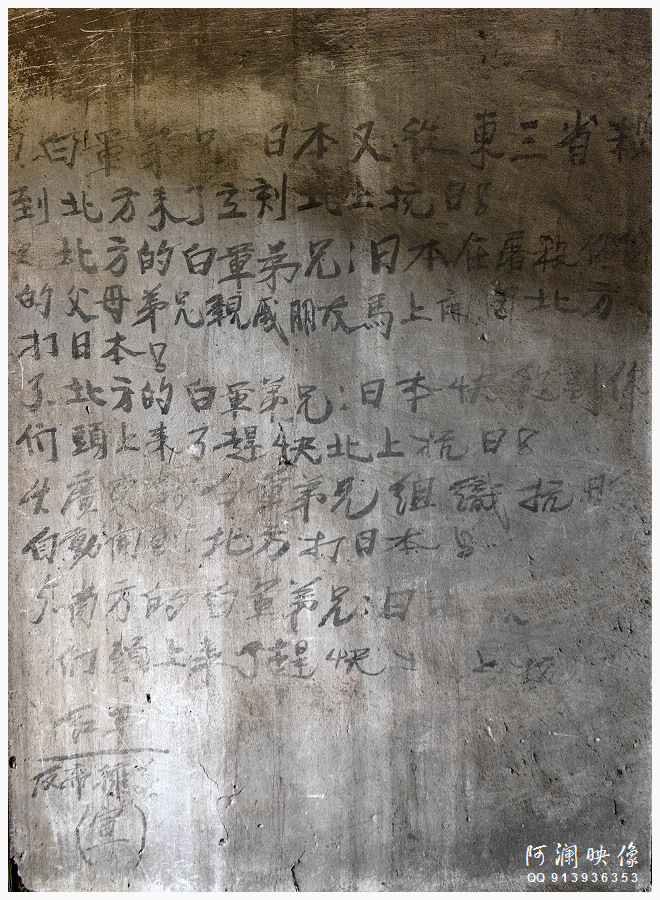 白軍弟兄 日本又從東三省殺
到北方来了立刻北上抗日
北方的白軍弟兄:日本在屠殺你
的父母弟兄親戚朋友馬上開 北方
打日本
北方的白軍弟兄:日本快殺到你
们頭上来了趕快北上抗日
廣東 白軍弟兄組織抗日
自動開到北方打日本
南方的白軍弟兄:日
们頭上来了趕快 上抗
红军
反帝擁
(宣)
阿澜映像
QQ 913936353